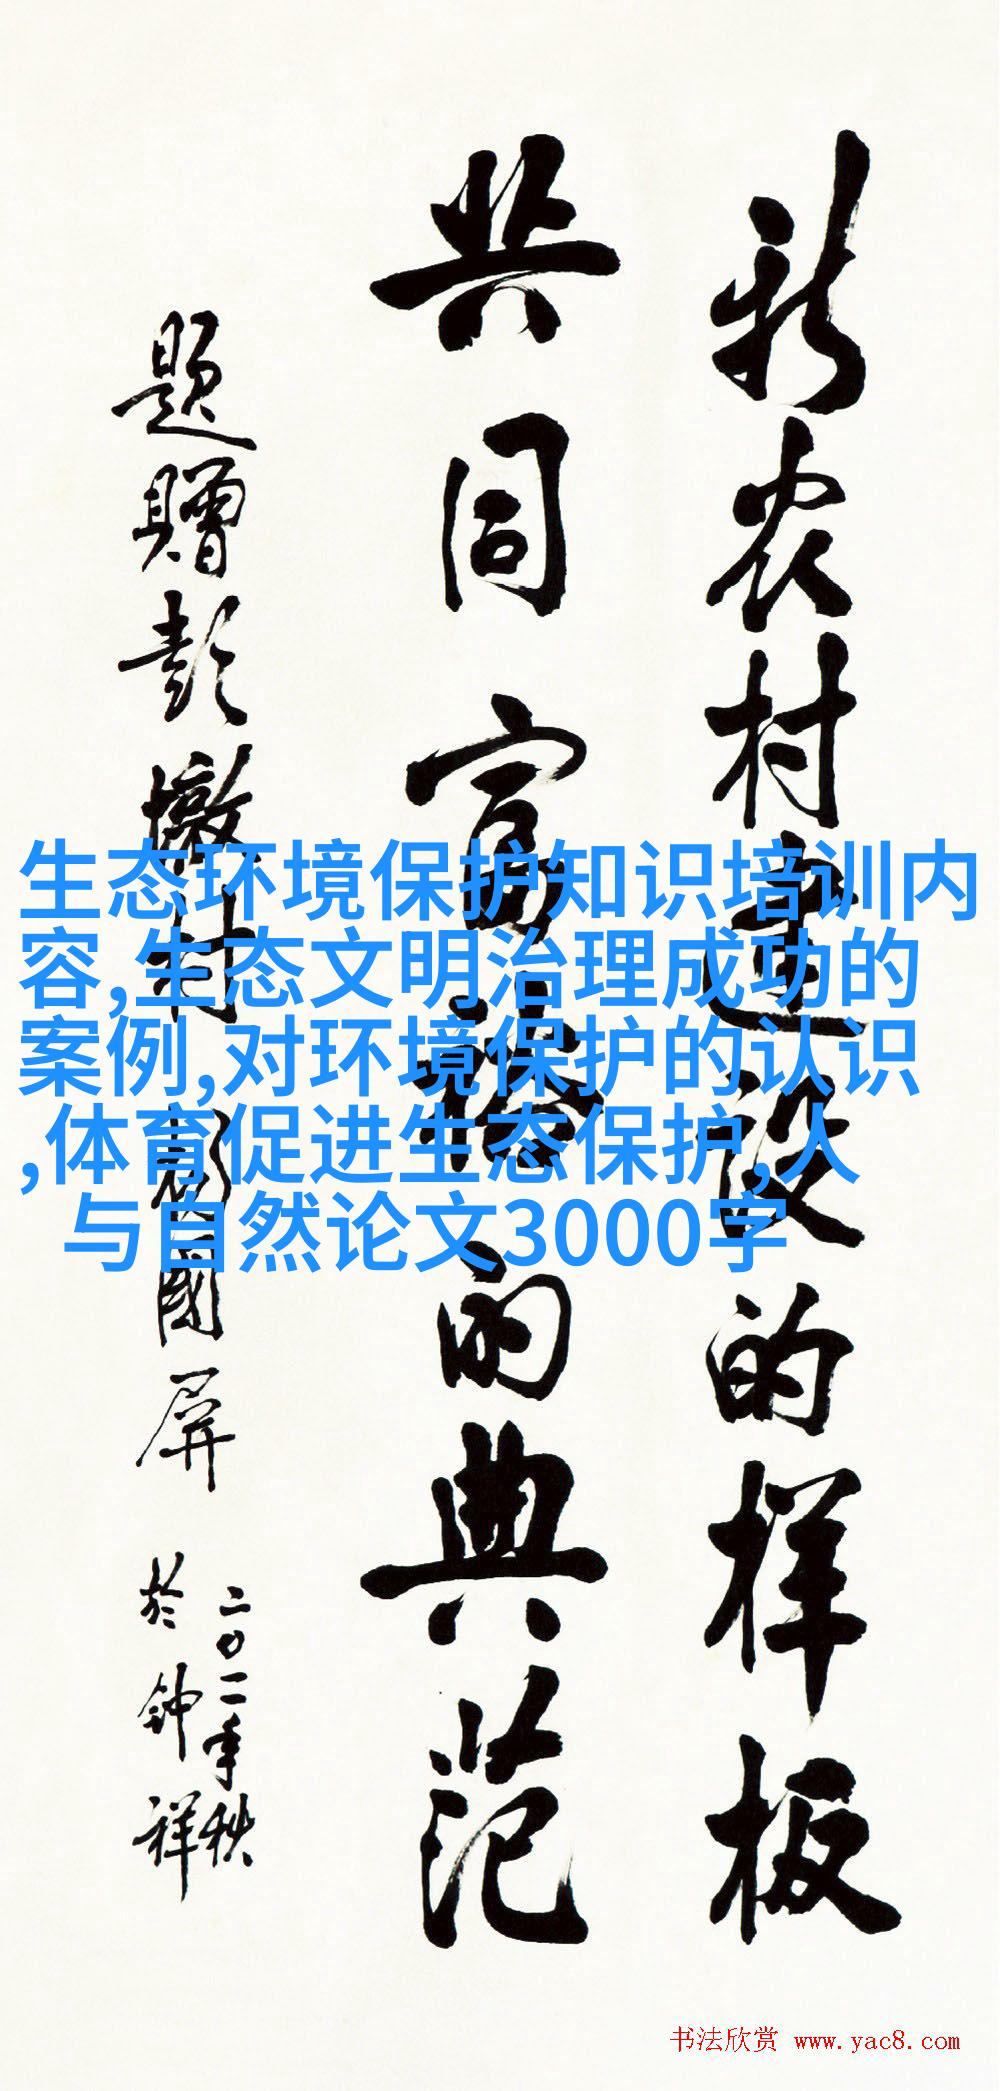 新农村建设的样板
共同富裕的典范
题赠彭墩村 彭國屏
二〇一一年秋
於钟祥
生态环境保护知识培训内
容,生态文明治理成功的
案例,对环境保护的认识
,体育促进生态保护,人
与自然论文3000字
书法欣赏 www.yac8.com